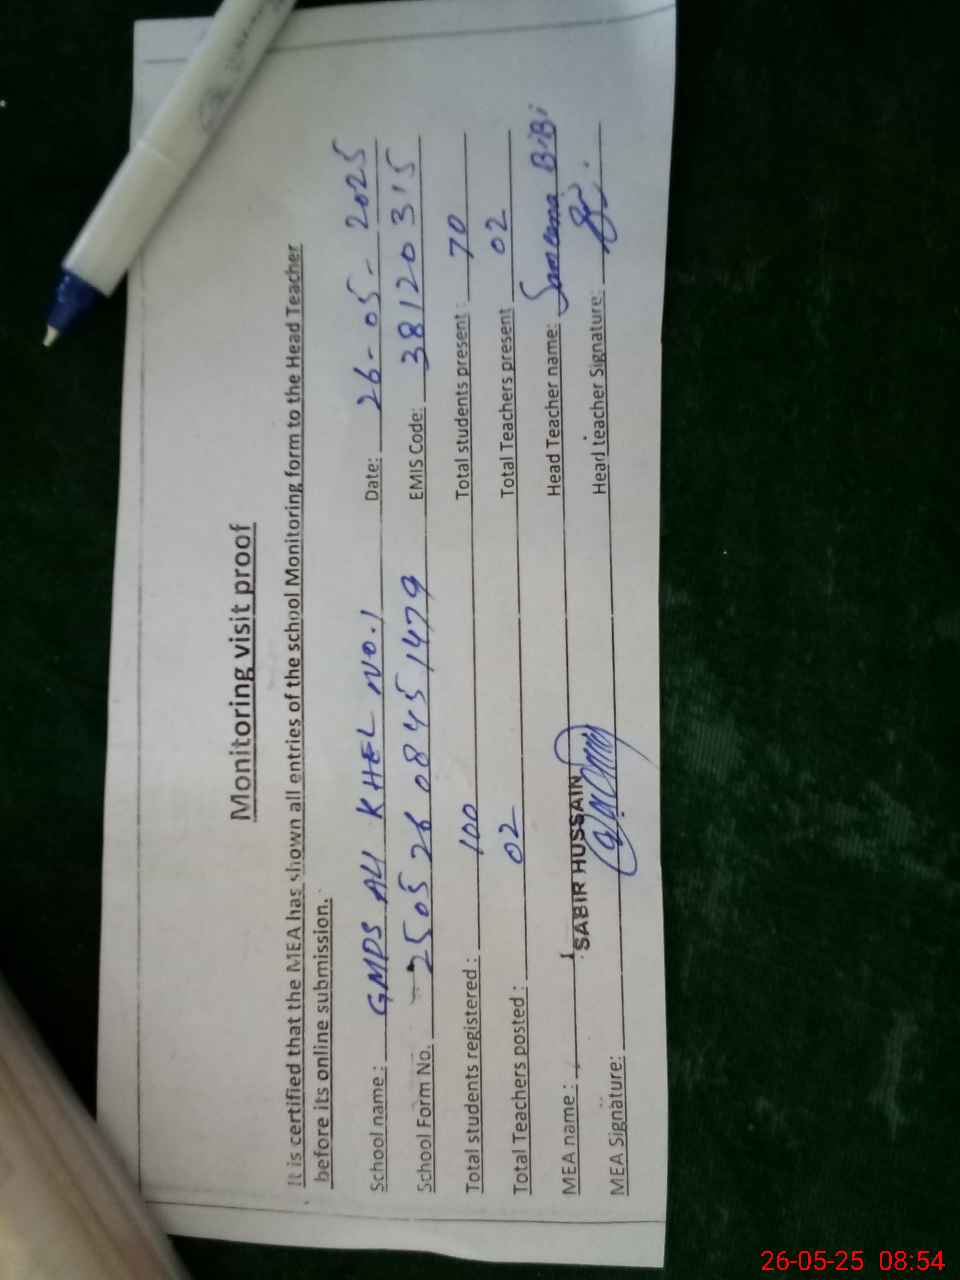 Monitoring visit proof
It is certified that the MEA has shown all entries of the school Monitoring form to the Head Teacher
before its online submission.
School name: GMPS ALI KHEL NO.1 Date: 26-05-2025
School Form No. 25052608451479 EMIS Code: 38120315
Total students registered: 100 Total students present: 70
Total Teachers posted: 02 Total Teachers present 02
MEA name: SABIR HUSSAIN Head Teacher name: BiBi
MEA Signature: Head teacher Signature:
26-05-25 08:54